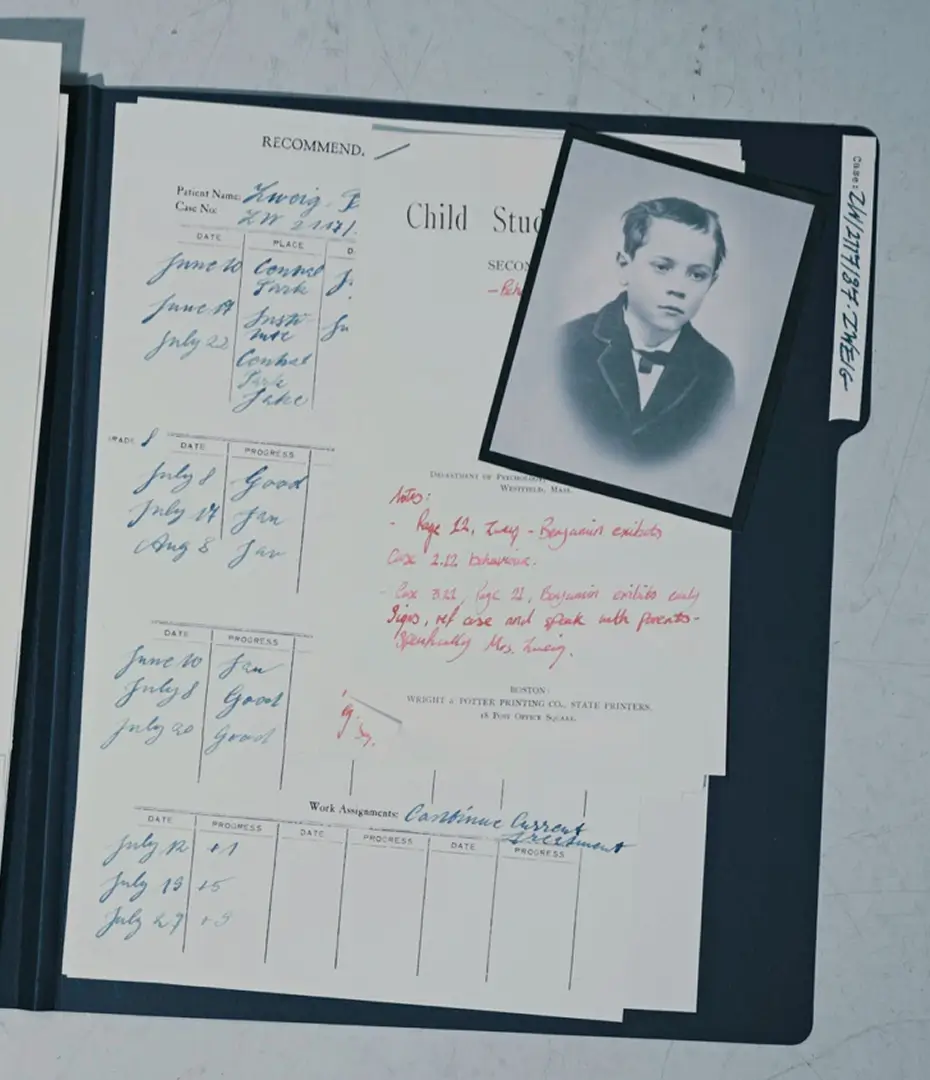 RECOMMEND.
Patient Name: Zweig.
Case No: ZW 2117/
DATE PLACE D.
June 10 Central
Park
June 17 Insti-
tute
July 22
Central
Park
Lake
GRADE
DATE PROGRESS
July 8 Good
July 17 Fair
Aug 8 Fair
DATE PROGRESS
June 10 Fair
July 8 Good
July 20 Good
Work Assignments: Continue Current
Treatment
DATE PROGRESS DATE PROGRESS DATE PROGRESS
July 12 +1
July 19 +5
July 27
Child Stud
SECON
DEPARTMENT OF PSYCHOLOGY,
WESTFIELD, MASS.
Notes:
- Page 12, Zweig - Benjamin exibits
Case 2.12 behaviour.
- Case 3.21, Page 21, Benjamin exibits early
signs, ref case and speak with parents -
Specifically Mrs. Zweig.
BOSTON:
WRIGHT & POTTER PRINTING CO., STATE PRINTERS,
18 POST OFFICE SQUARE.
Case: ZW/2117/87. ZWEIG